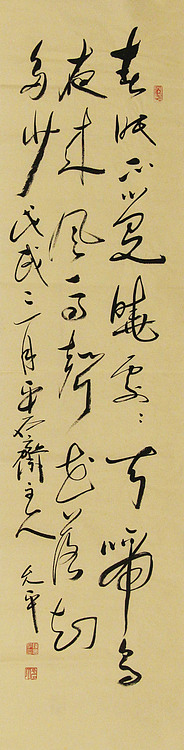 春眠不覺曉處〻聞啼鳥
夜來風雨聲花落知
多少 戊戌三月平石齋主人